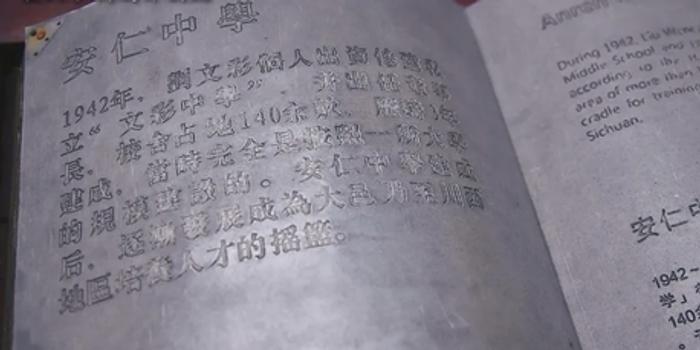 安仁中學
1942年，劉文彩個人出資
立“文彩中學”，并出任
長，校舍占地140余畝，
建成，當時完全是按照一所大學
的規模建設的。安仁中學建成
后，逐漸發展成為大邑乃至川西
地區培養人才的搖籃。
Anren
During 1942, Liu Wenc
Middle School and
according to the
area of more than
cradle for training
Sichuan.
安仁中
1942
学」
140